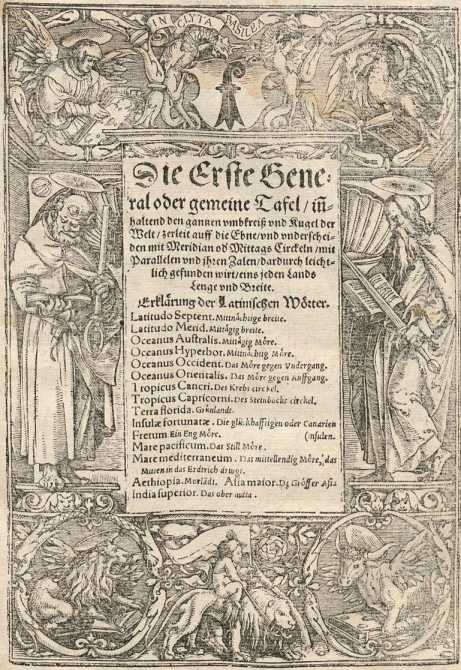 INCLYTA BASILEA
Die Erste Gene-
ral oder gemeine Tafel / iñ
haltend den gantzen vmbkreiß vnd Kugel der
Welt / zerleit auff die Ebne / vnd vnderschei-
den mit Meridian od Mittags Circkeln / mit
Parallelen vnd ihren Zalen / dardurch leicht-
lich gefunden wirt / eins jeden Lands
Lenge vnd Breite.
Erklärung der Latinischen Wörter.
Latitudo Septent. Mitnächtige breite.
Latitudo Merid. Mittägig breite.
Oceanus Australis. Mittägig Möre.
Oceanus Hyperbor. Mitnächtig Möre.
Oceanus Occident. Das Möre gegen Vndergang.
Oceanus Orientalis. Das Möre gegen Auffgang.
Tropicus Cancri. Des Krebs circkel.
Tropicus Capricorni. Des Steinbocks circkel.
Terra florida. Grünlandt.
Insulæ fortunatæ. Die glückhafftigen oder Canarien
Fretum. Ein Eng Möre. (insulen.
Mare pacificum. Das Still Möre.
Mare mediterraneum. Das mittellendig Möre, das
in das Erdtrich
Aethiopia. Morlädt. Asia maior. Dz Gröffer Asia
India superior. Das ober